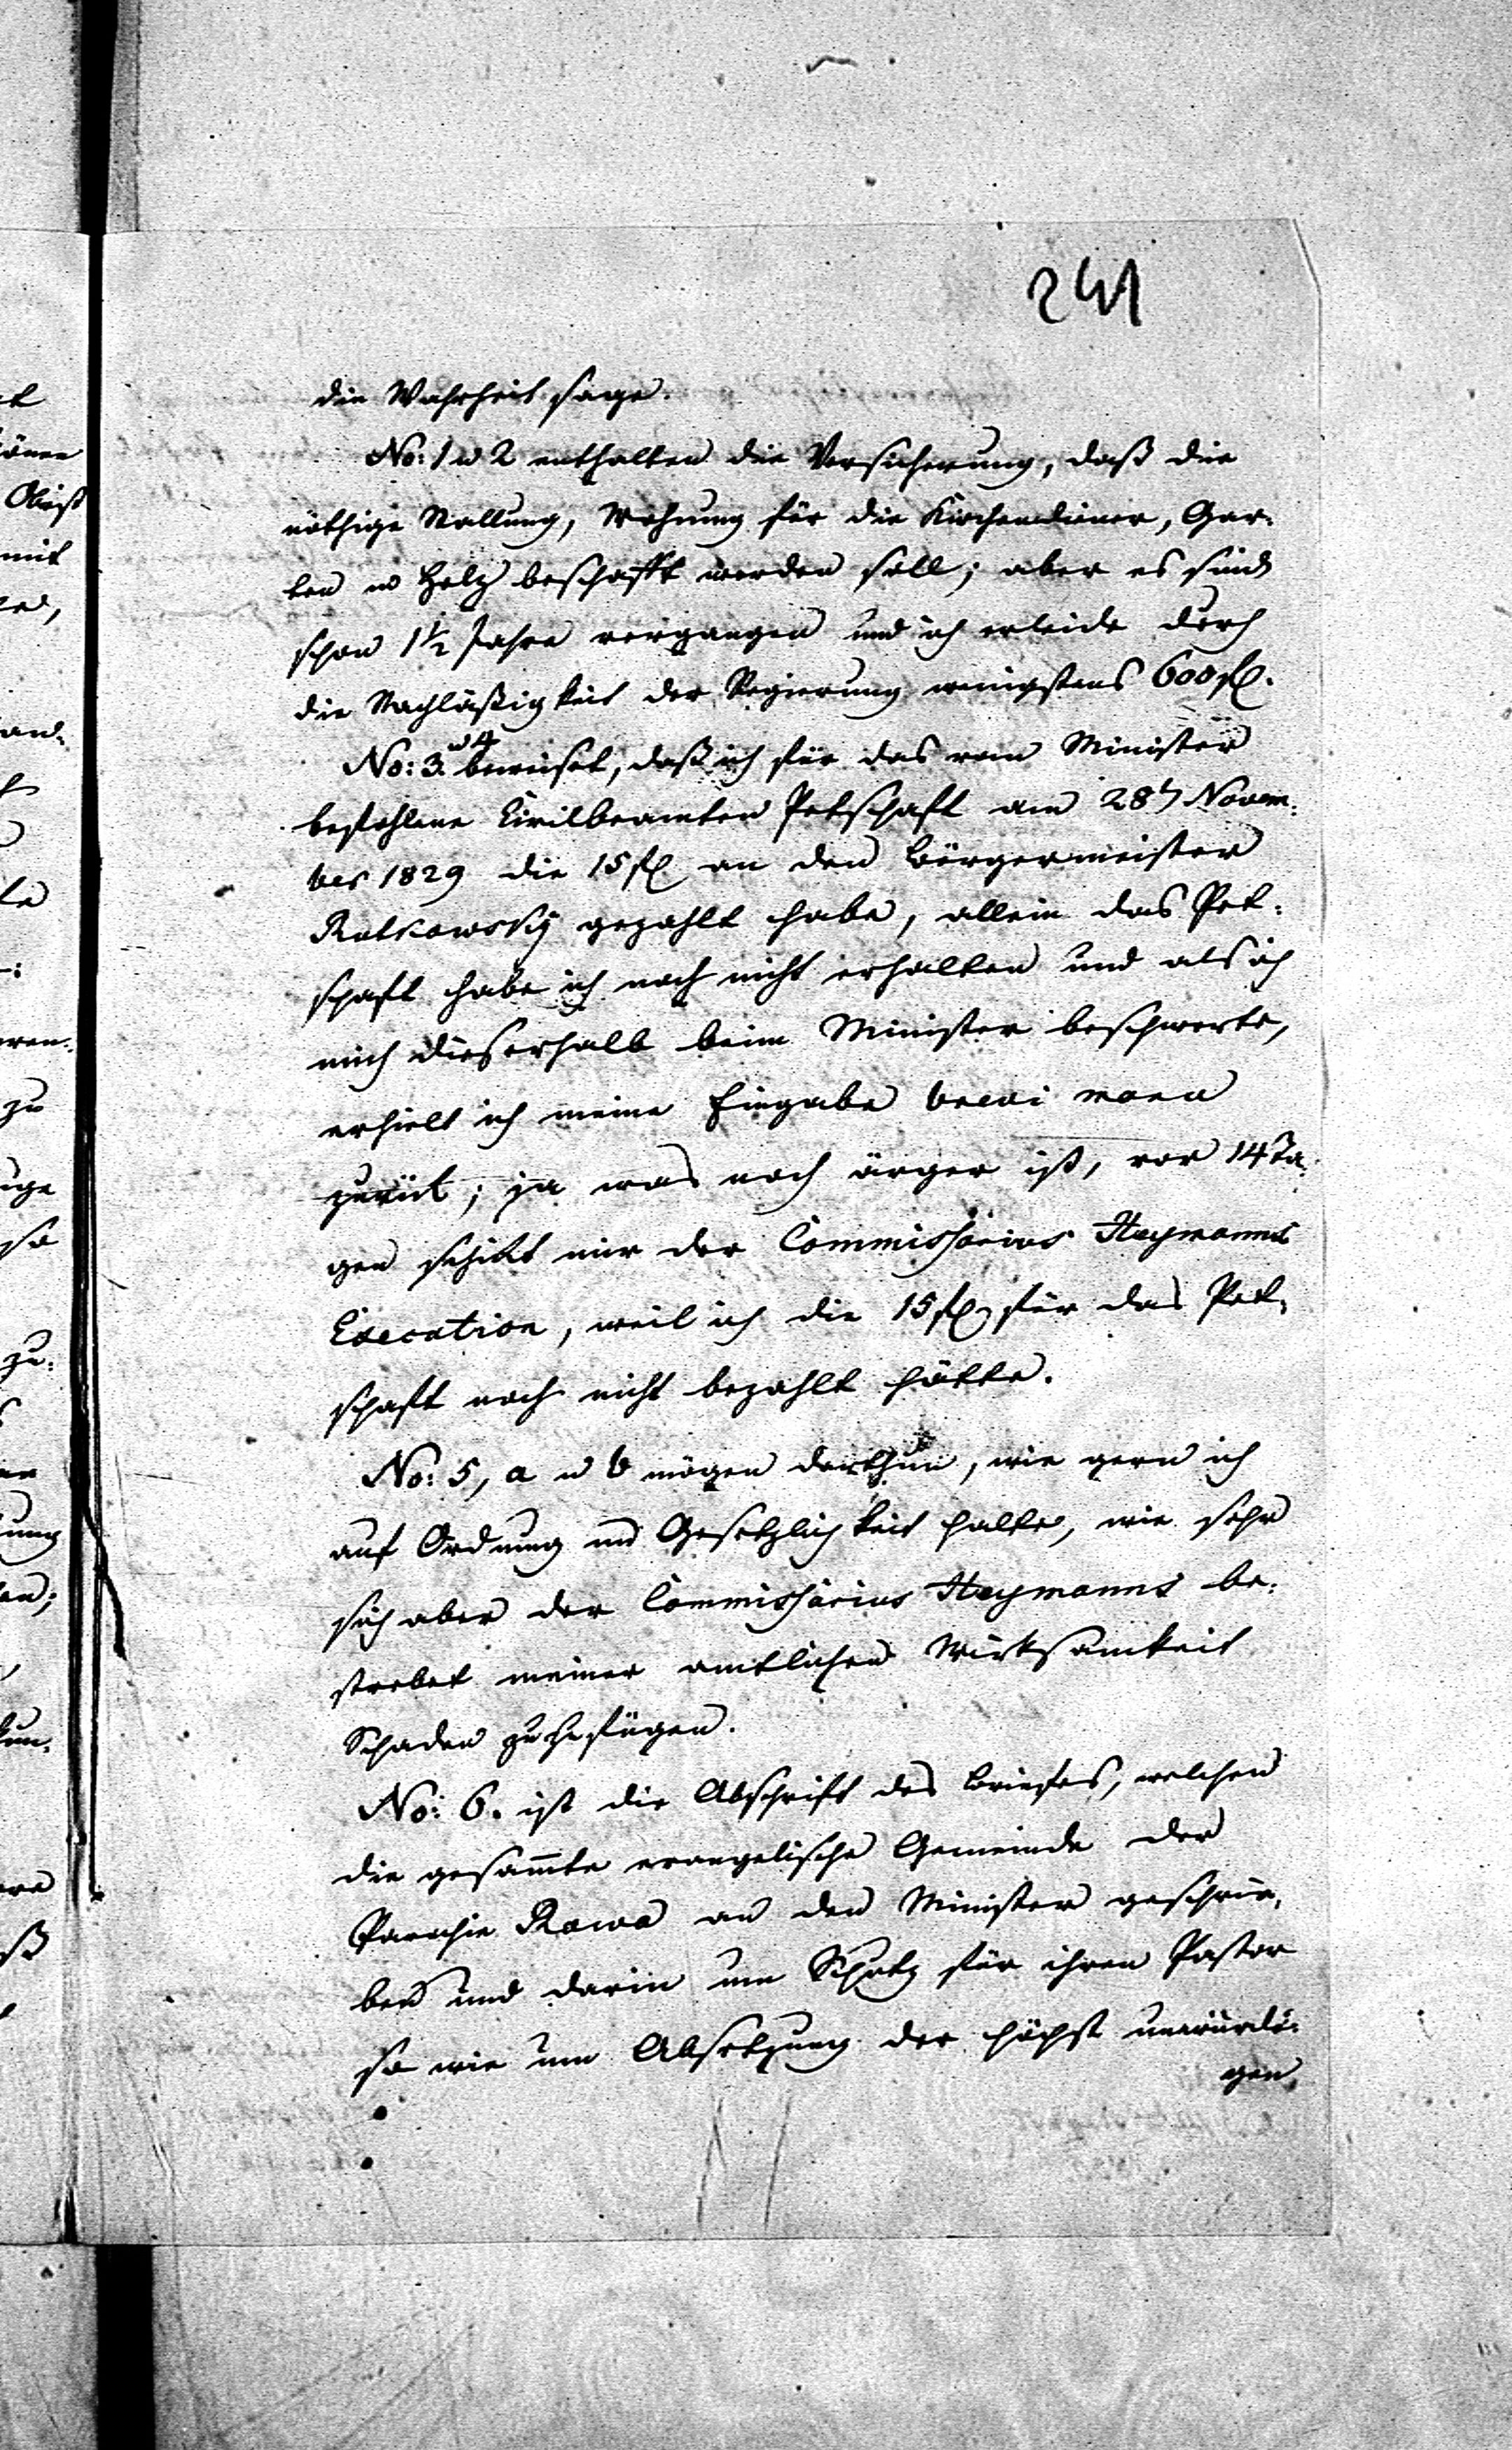 241
die Wahrheit sage.
No: 1 u 2 enthalten die Versicherung, daß die
nöthige Stallung, Wohnung für die Kirchendiener, Gar-
ten u Holz beschafft werden soll; aber es sind
schon 1½ Jahre vergangen und ich erleide durch
die Nachläßigkeit der Regierung wenigstens 600 fl.
No: 3. u 4 beweiset, daß ich für das vom Minister
befohlene Civilbeamten Petschaft am 28t Novem-
ber 1829 die 15 fl an den Bürgermeister
Rutkowsky gezahlt habe, allein das Pet-
schaft habe ich noch nicht erhalten und als ich
mich dieserhalb beim Minister beschwerte,
erhielt ich meine Eingabe brevi manu
zurück; ja was noch ärger ist, vor 14 Ta-
gen schickt mir der Commissarius Haymanns
Execution, weil ich die 15 fl für das Pet-
schaft noch nicht bezahlt hätte.
No: 5, a u b mögen darthun, wie gern ich
auf Ordnung und Gesetzlichkeit halte, wie sehr
sich aber der Commissarius Haymanns be-
strebet meiner amtlichen Wirksamkeit
Schaden zuzufügen.
No: 6. ist die Abschrift des Briefes, welchen
die gesam̄te evangelische Gemeinde der
Parochie Rawa an den Minister geschrie-
ben und darin um Schutz für ihren Pastor
so wie um Absetzung der höchst unwürdi-
gen